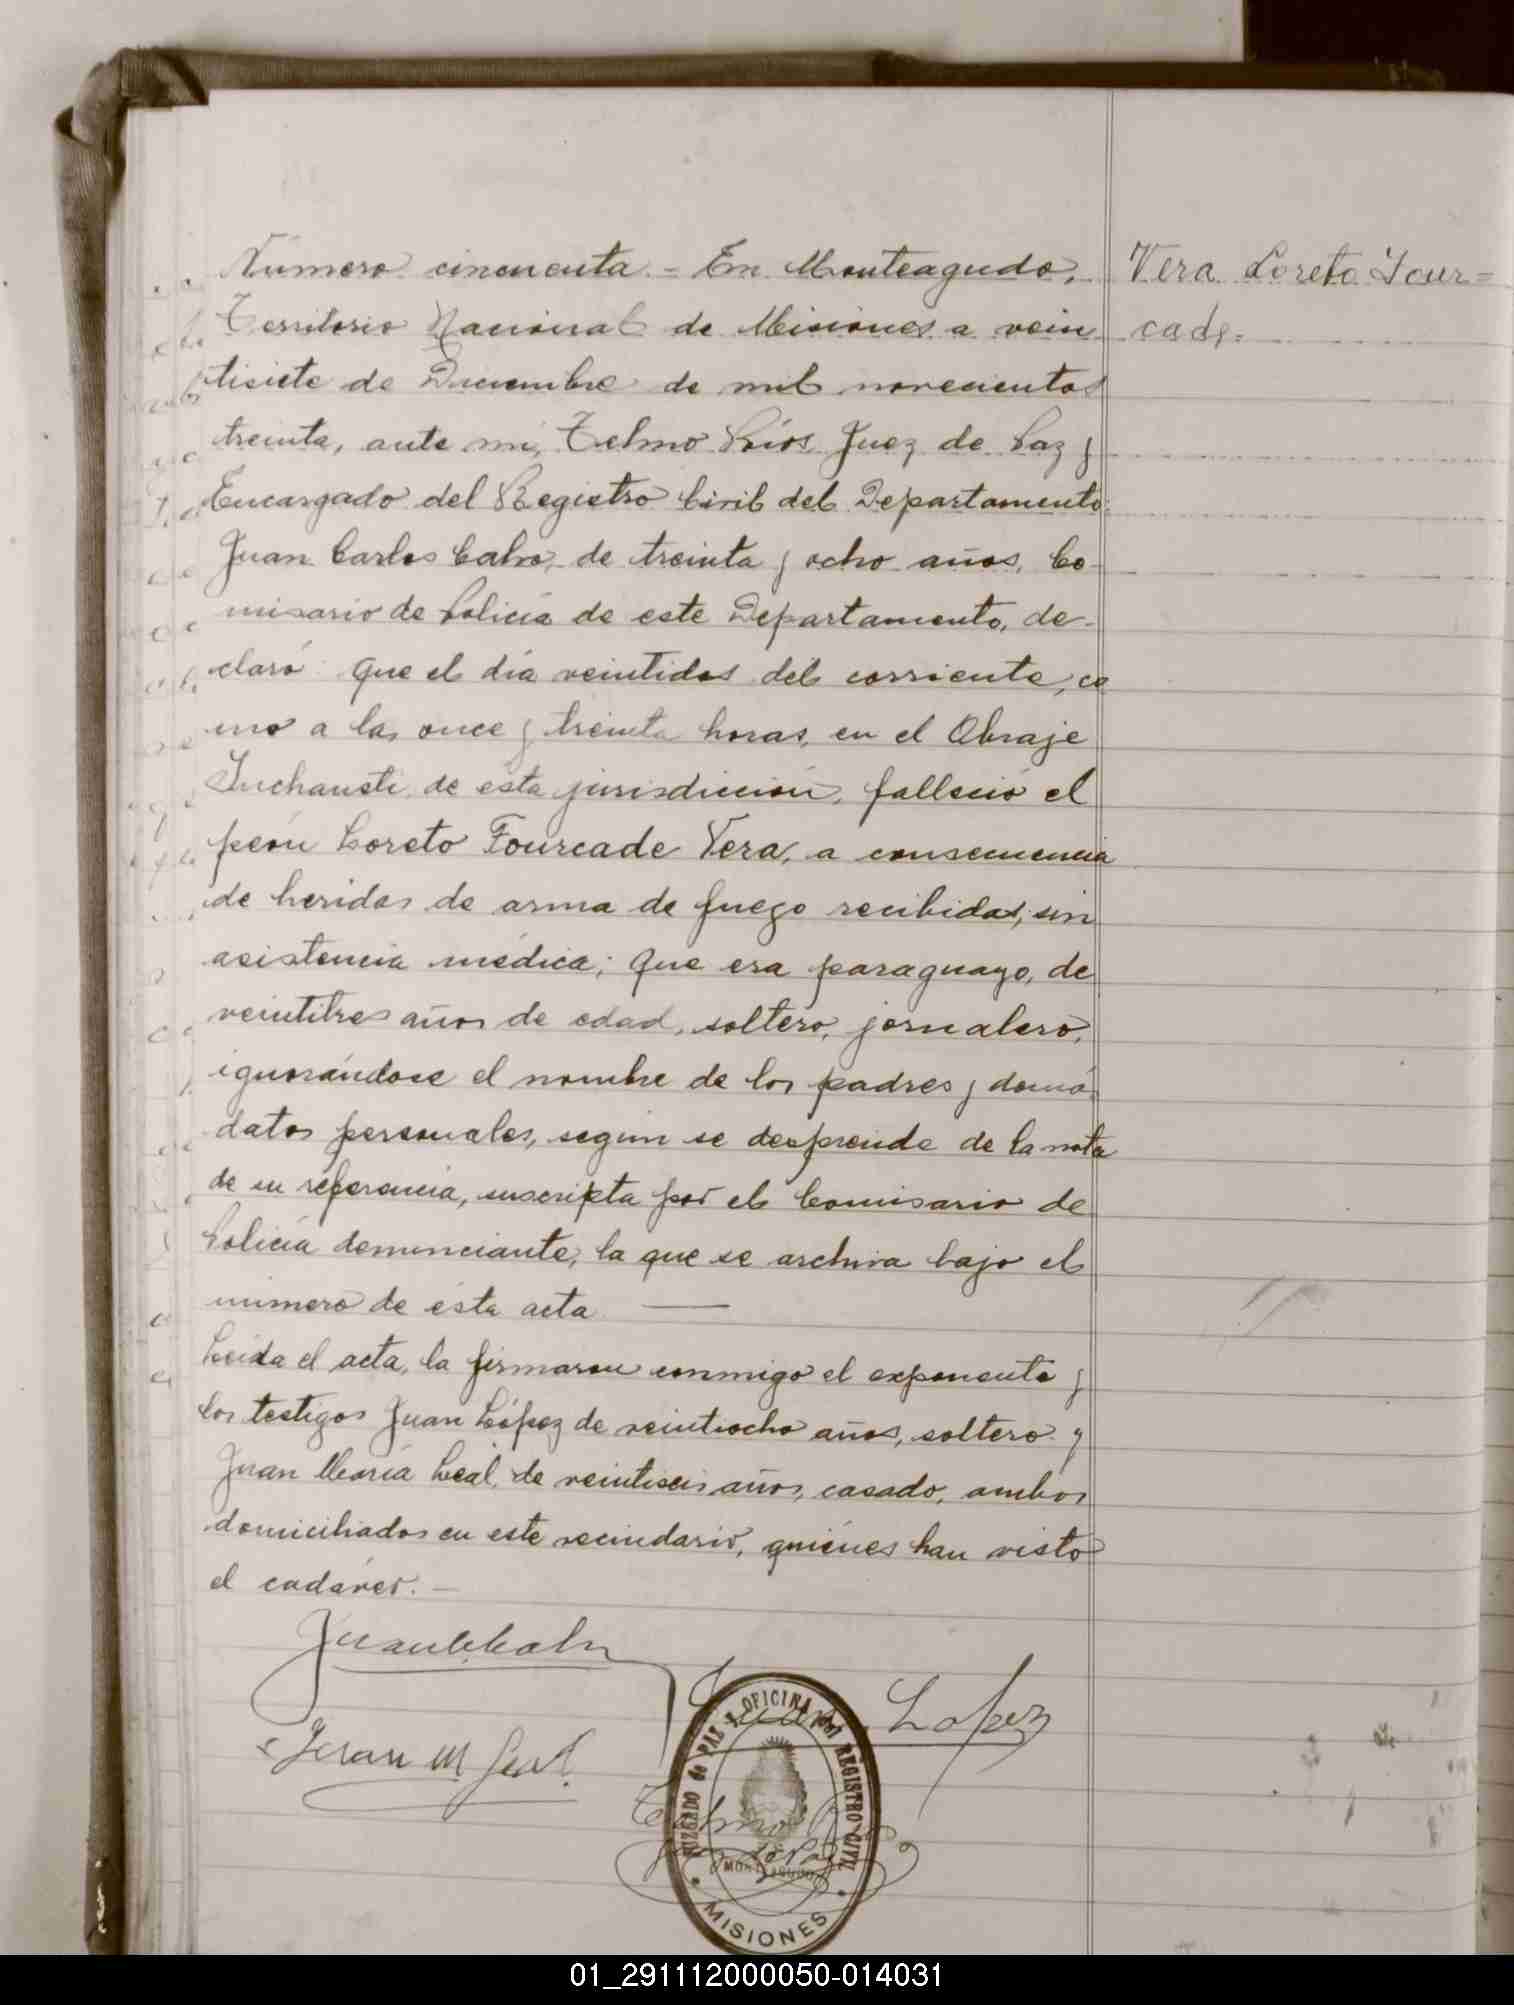 Número cincuenta.- En Monteagudo,
Territorio Nacional de Misiones a vein
tisiete de Diciembre de mil novecientos
treinta, ante mi, Telmo Ríos Juez de Paz y
Encargado del Registro Civil del Departamento
Juan Carlos Calvo, de treinta y ocho años, Co-
misario de Policía de este Departamento, de-
claró: Que el día veintidos del corriente, co
mo a las once y treinta horas, en el Obraje
Inchausti de esta jurisdicción, falleció el
peón Loreto Fourcade Vera, a consecuencia
de heridas de arma de fuego recibidas, sin
asistencia médica; Que era paraguayo, de
veintitres años de edad, soltero, jornalero,
ignorándose el nombre de los padres y demás
datos personales, según se desprende de la nota
de su referencia, suscripta por el Comisario de
Policía denunciante, la que se archiva bajo el
número de ésta acta.
Leida el acta, la firmaron conmigo el exponente y
los testigos Juan López de veintiocho años, soltero y
Juan María Leal, de veintiseis años, casado, ambos
domiciliados en este vecindario, quiénes han visto
el cadáver.-
Vera Loreto Four=
cade.
Juan C. Calvo
Juan Lopez
Juan M Leal
Telmo
JUZGADO de PAZ y OFICINA del REGISTRO CIVIL
MONTEAGUDO
MISIONES
01_291112000050-014031